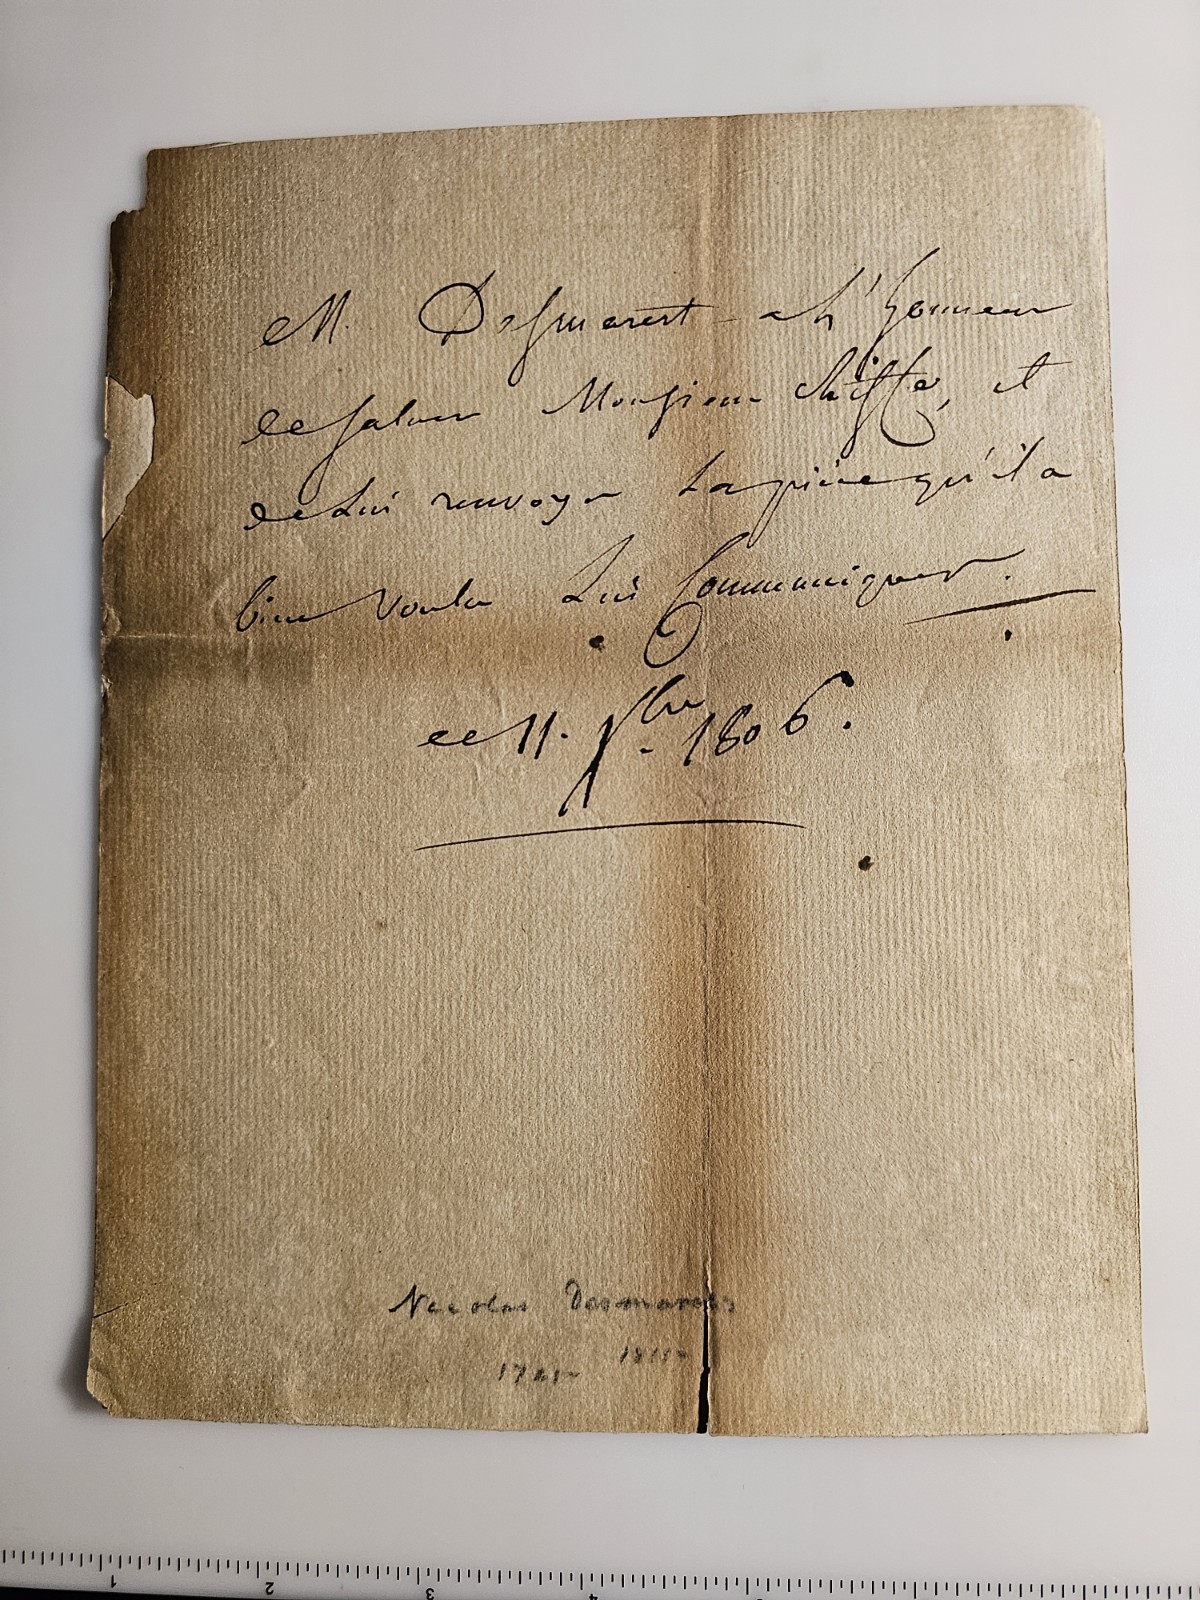 M. Desmarest a L'honneur
de saluer Monsieur et
de Lui renvoyer La pièce qu'il a
bien voulu Lui Communiquer.
ce 11. 1806.
Nicolas Desmarets
1 2 3 4